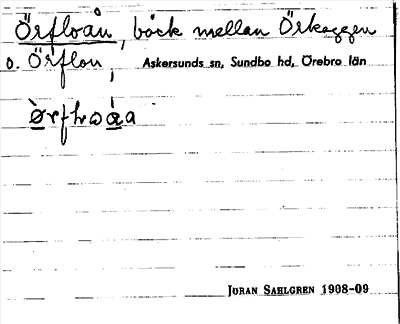 Örfloån, bäck mellan Örkaggen
o. Örflon, Askersunds sn, Sundbo hd, Örebro län
JÖRAN SAHLGREN 1908-09